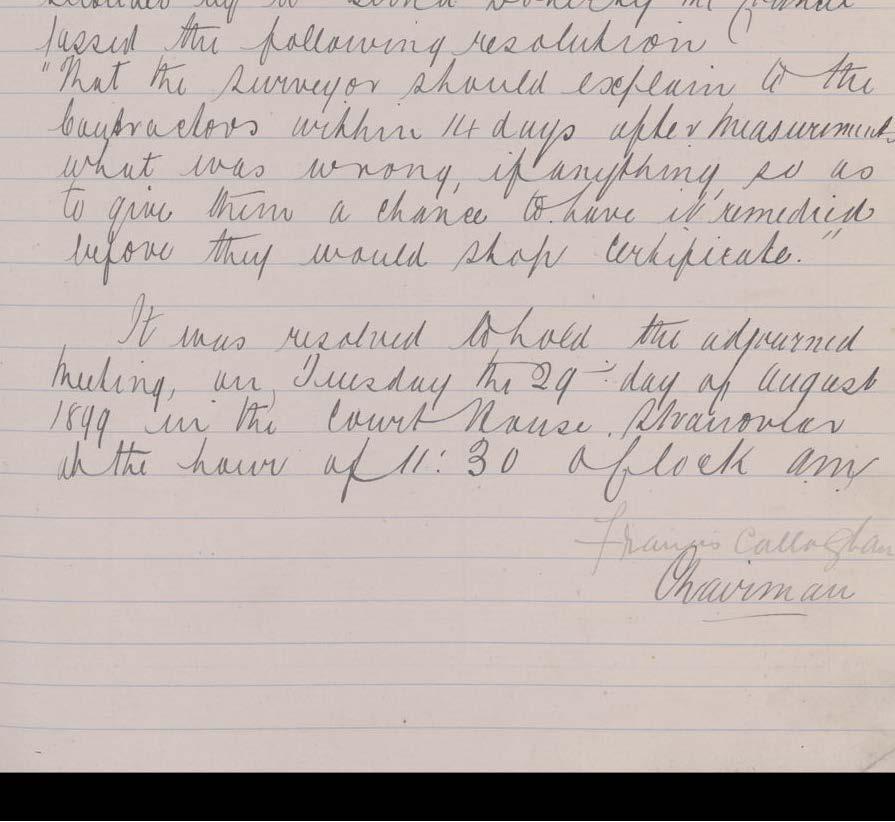 seconded by Mr Doherty the Council
passed the following resolution
"That the surveyor should explain to the
Contractors within 14 days after measurement
what was wrong, if anything, so as
to give them a chance to have it remedied
before they would stop certificate."
It was resolved to hold the adjourned
meeting, on Tuesday the 29th day of August
1899 in the Court House, Stranorlar
at the hour of 11:30 o'Clock am
Francis Callaghan
Chairman